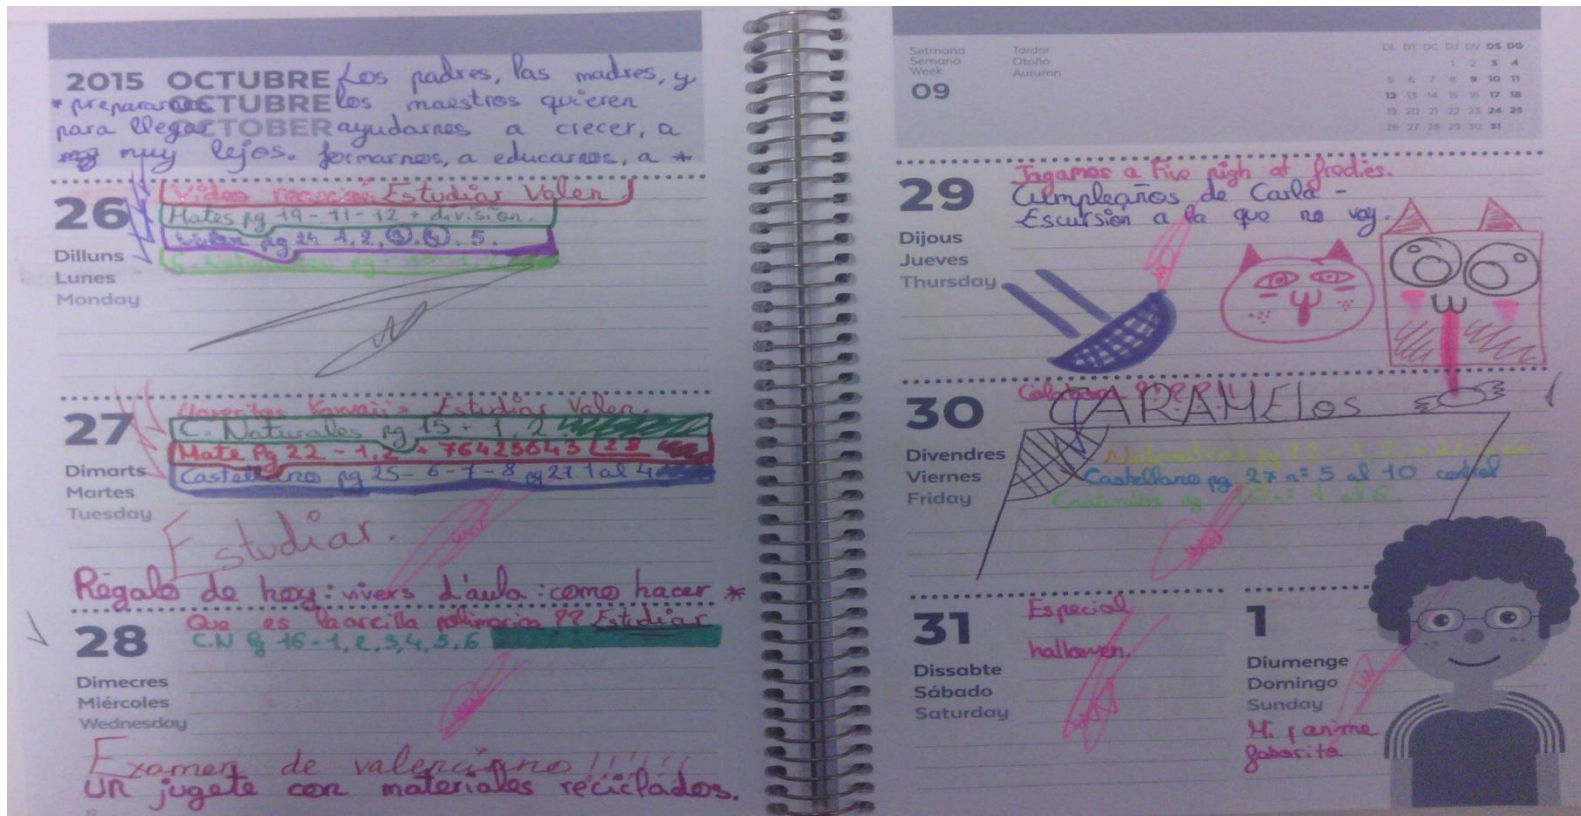 2015 OCTUBRE Los padres, las madres, y
* prepararnos OCTUBRE los maestros quieren
para llegar OCTOBER ayudarnos a crecer, a
muy lejos. formarnos, a educarnos, a *
26
Dilluns
Lunes
Monday
Video Estudiar Valen
Mates pg 19 - 11 - 12 + división.
Valen pg 24 1, 2, 3, 4, 5.
C. Naturales pg
27
Dimarts
Martes
Tuesday
Kawaii Estudiar Valen.
C. Naturales pg 15 + 1, 2
Mate Pg 22 - 1, 2 + 76425643 28
Castellano pg 25 - 6 - 7 - 8 pg 27 1 al 4
Estudiar.
Regalo de hoy: vivers d'aula: como hacer *
28
Dimecres
Miércoles
Wednesday
Que es la arcilla polimerica ?? Estudiar
C.N Pg 16 - 1, 2, 3, 4, 5, 6
Examen de valenciano !!!!!!
UN jugete con materiales reciclados.
Setmana
Semana
Week
09
Tardor
Otoño
Autumn
DL DT DC DJ DV DS DG
1 2 3 4
5 6 7 8 9 10 11
12 13 14 15 16 17 18
19 20 21 22 23 24 25
26 27 28 29 30 31
29
Dijous
Jueves
Thursday
Jugamos a Five nigh at fredies.
Cumpleaños de Carla -
Escursión a la que no voy.
30
Divendres
Viernes
Friday
CARAMELos
Castellano pg 27 nº 5 al 10 control
31
Dissabte
Sábado
Saturday
Especial
hallowen.
1
Diumenge
Domingo
Sunday
Mi anime
faborito